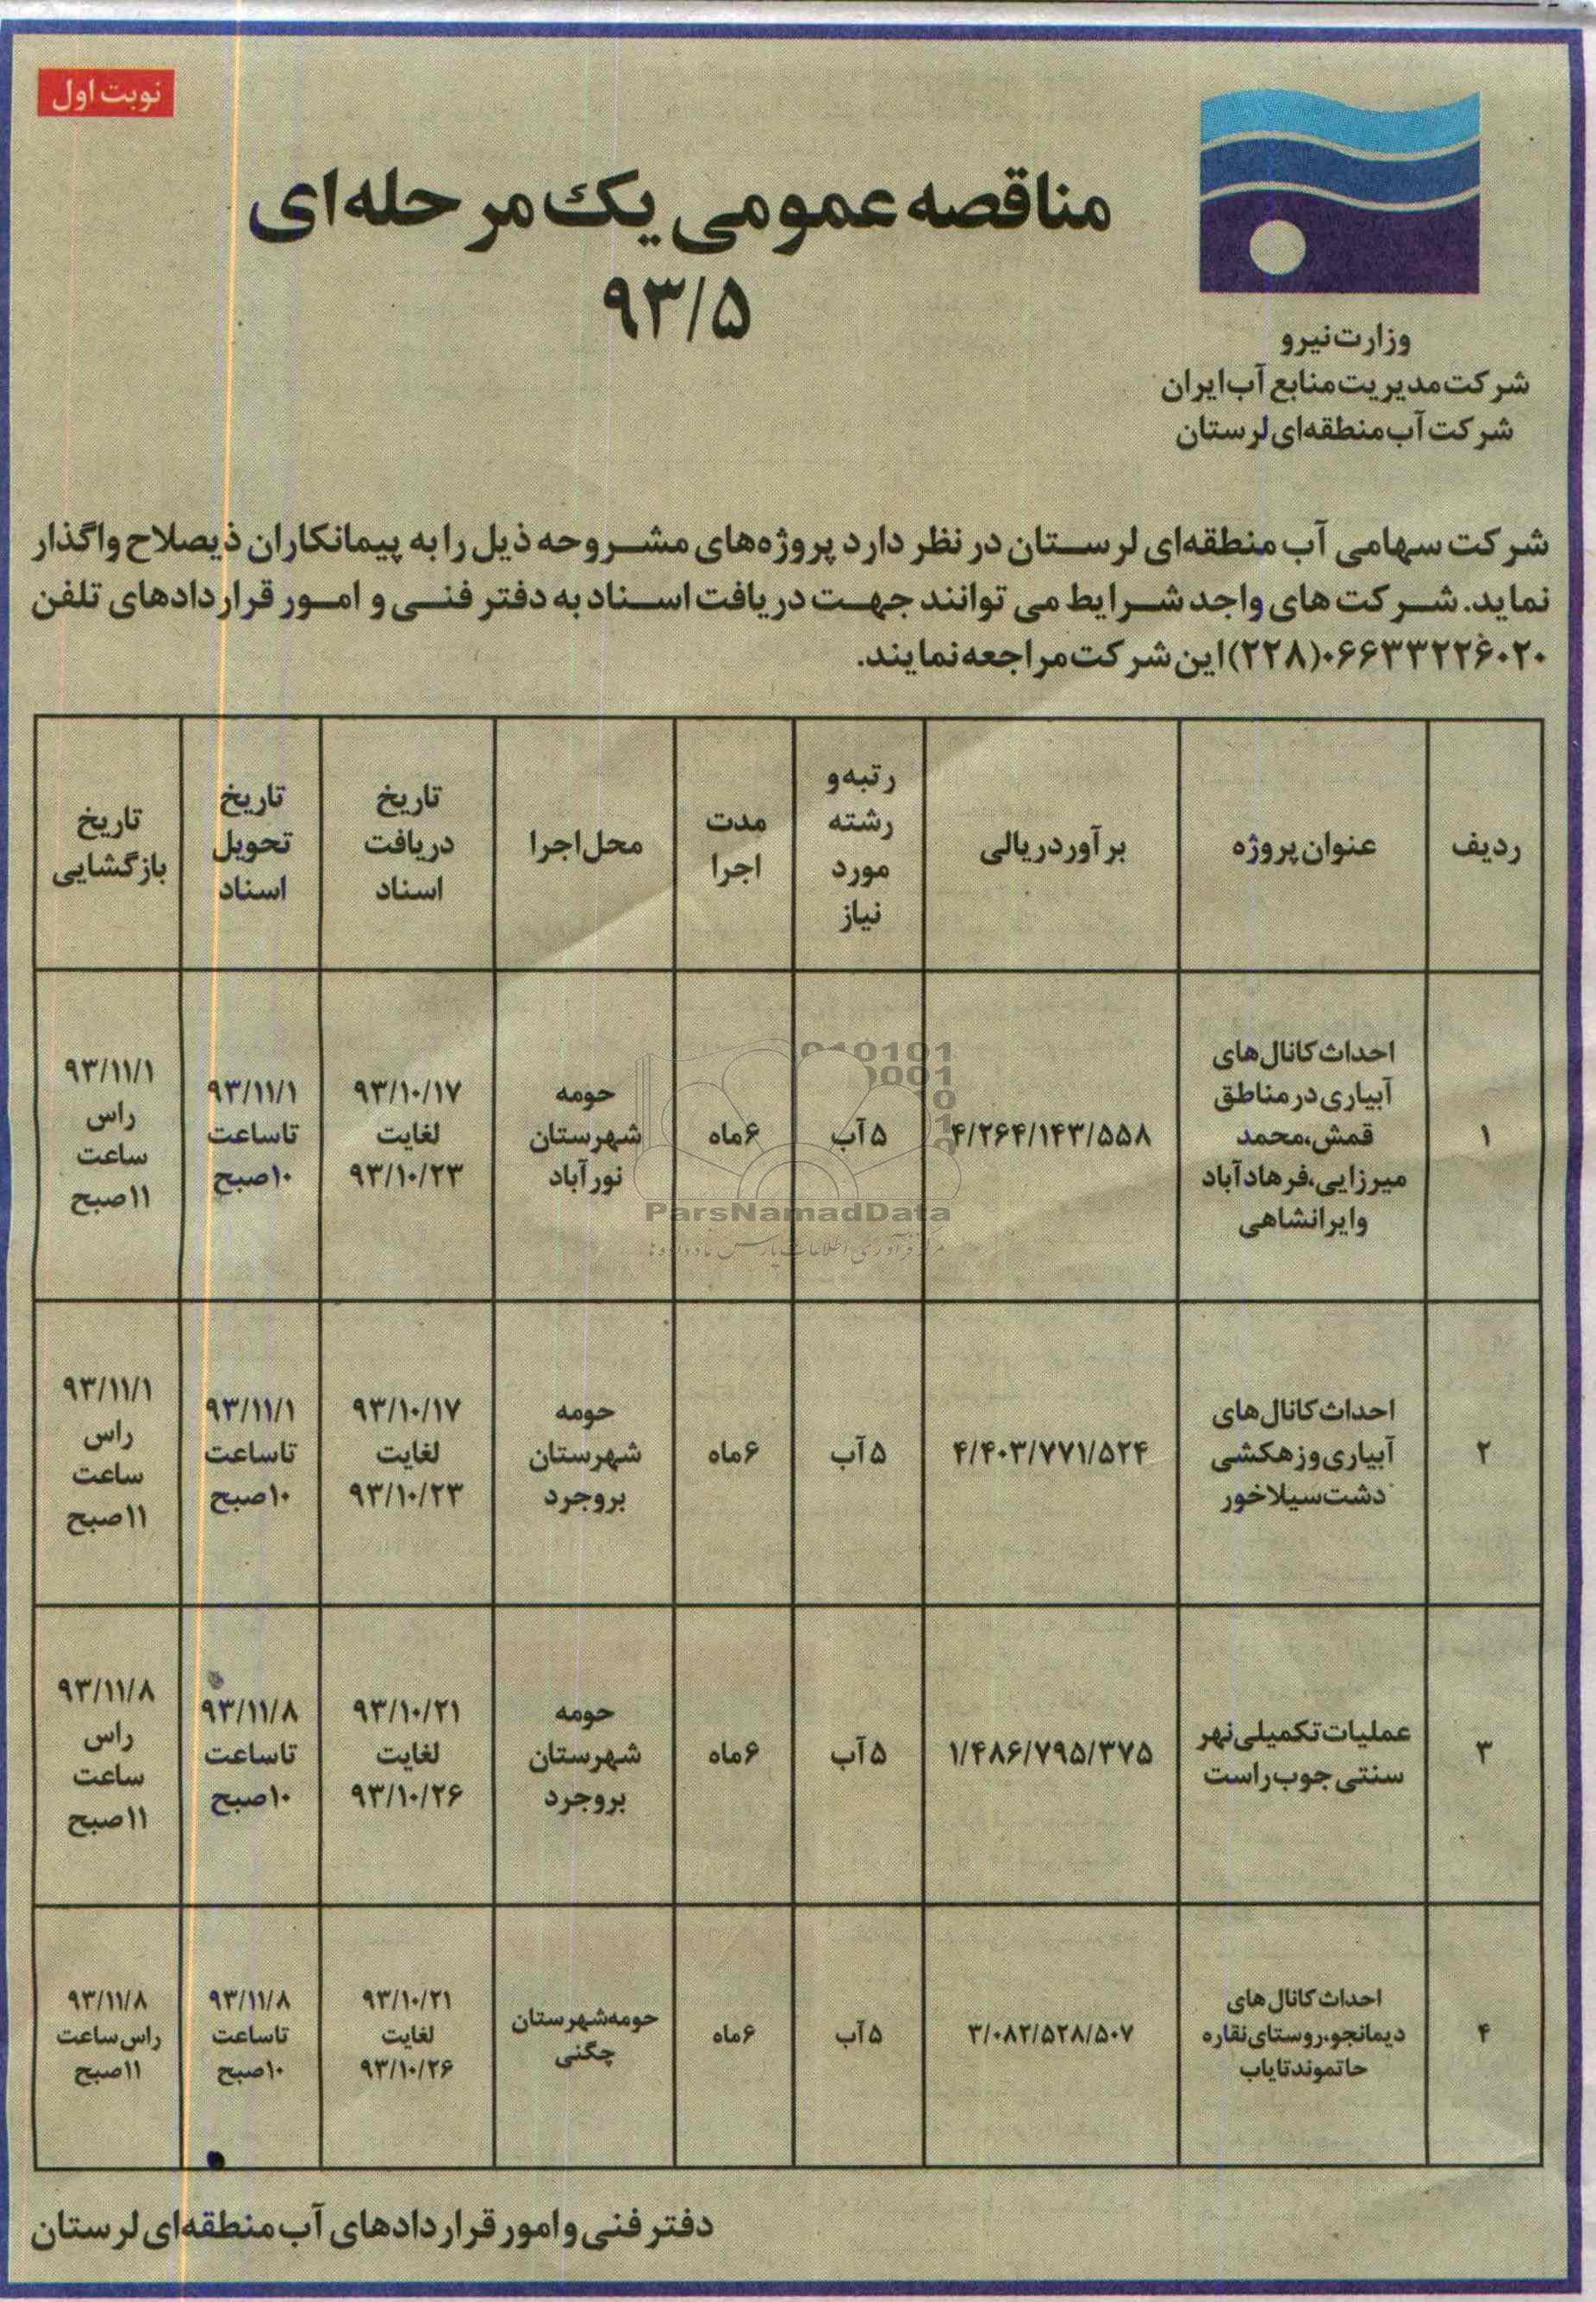 نوبت اول
مناقصه عمومی یک مرحله ای
۹۳/۵
وزارت نیرو
شرکت مدیریت منابع آب ایران
شرکت آب منطقه‌ای لرستان
شرکت سهامی آب منطقه‌ای لرستان در نظر دارد پروژه‌های مشروحه ذیل را به پیمانکاران ذیصلاح واگذار
نماید. شرکت های واجد شرایط می توانند جهت دریافت اسناد به دفتر فنی و امور قراردادهای تلفن
۰۶۶۳۳۲۲۶۰۲۰(۲۲۸) این شرکت مراجعه نمایند.
ردیف
عنوان پروژه
برآورد ریالی
رتبه و
رشته
مورد
نیاز
مدت
اجرا
محل اجرا
تاریخ
دریافت
اسناد
تاریخ
تحویل
اسناد
تاریخ
بازگشایی
۱
احداث کانال های
آبیاری در مناطق
قمش، محمد
میرزایی، فرهادآباد
و ایرانشاهی
۴/۲۶۴/۱۴۳/۵۵۸
۵ آب
۶ ماه
حومه
شهرستان
نورآباد
۹۳/۱۰/۱۷
لغایت
۹۳/۱۰/۲۳
۹۳/۱۱/۱
تا ساعت
۱۰ صبح
۹۳/۱۱/۱
راس
ساعت
۱۱ صبح
۲
احداث کانال های
آبیاری و زهکشی
دشت سیلاخور
۴/۴۰۳/۷۷۱/۵۲۴
۵ آب
۶ ماه
حومه
شهرستان
بروجرد
۹۳/۱۰/۱۷
لغایت
۹۳/۱۰/۲۳
۹۳/۱۱/۱
تا ساعت
۱۰ صبح
۹۳/۱۱/۱
راس
ساعت
۱۱ صبح
۳
عملیات تکمیلی نهر
سنتی جوب راست
۱/۴۸۶/۷۹۵/۳۷۵
۵ آب
۶ ماه
حومه
شهرستان
بروجرد
۹۳/۱۰/۲۱
لغایت
۹۳/۱۰/۲۶
۹۳/۱۱/۸
تا ساعت
۱۰ صبح
۹۳/۱۱/۸
راس
ساعت
۱۱ صبح
۴
احداث کانال های
دیمانجو، روستای نقاره
حاتموند تایاب
۳/۰۸۲/۵۲۸/۵۰۷
۵ آب
۶ ماه
حومه شهرستان
چگنی
۹۳/۱۰/۲۱
لغایت
۹۳/۱۰/۲۶
۹۳/۱۱/۸
تا ساعت
۱۰ صبح
۹۳/۱۱/۸
راس ساعت
۱۱ صبح
ParsNamadData
دفتر فنی و امور قراردادهای آب منطقه‌ای لرستان